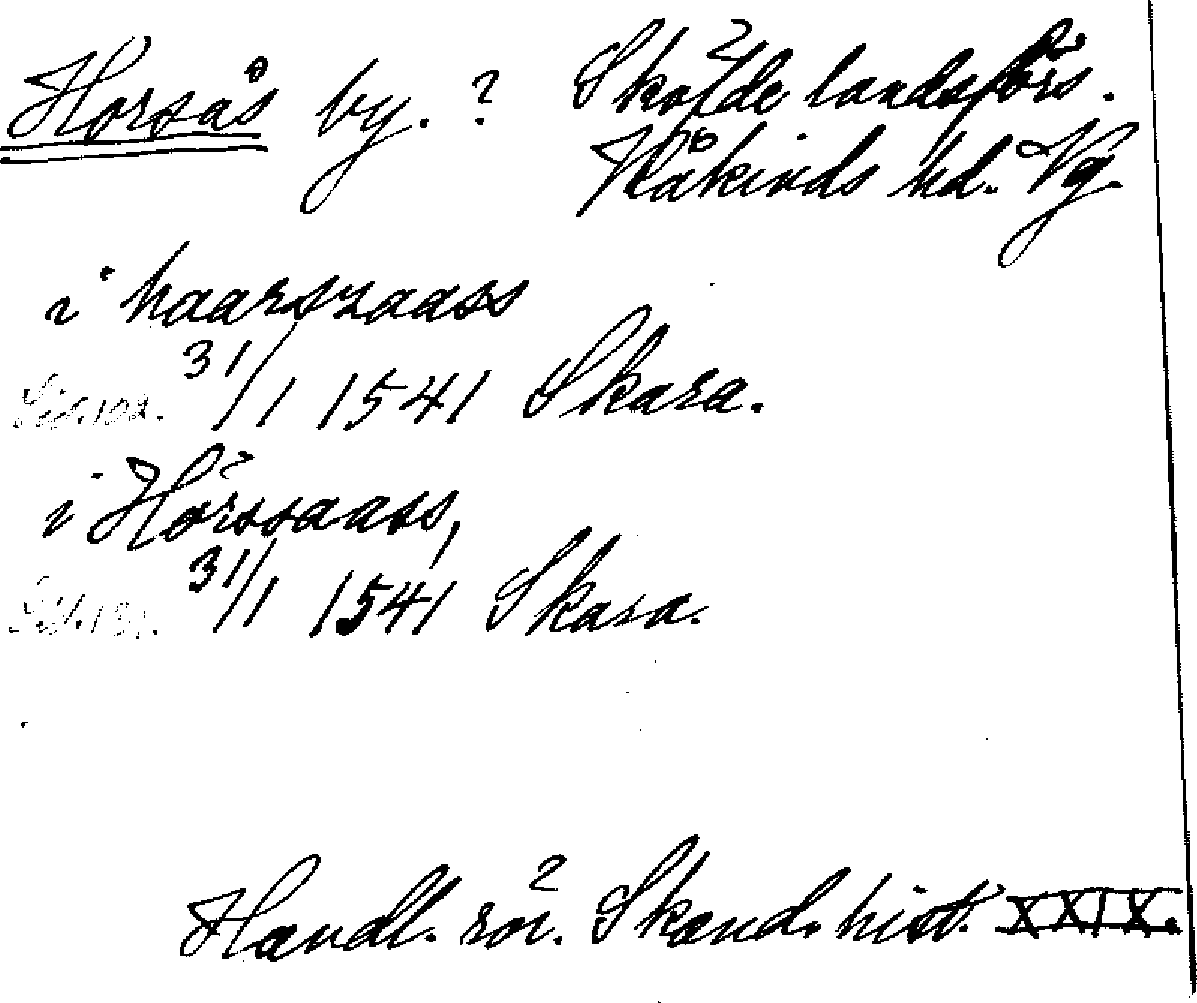 Horsås by. ? Skövde landsförs.
Kåkinds hd. Vg.
i haarszaass
Sid. 102. 31/1 1541 Skara.
i Hörssaass,
Sid. 131. 31/1 1541 Skara.
Handl. rör. Skand. hist. XXIX.